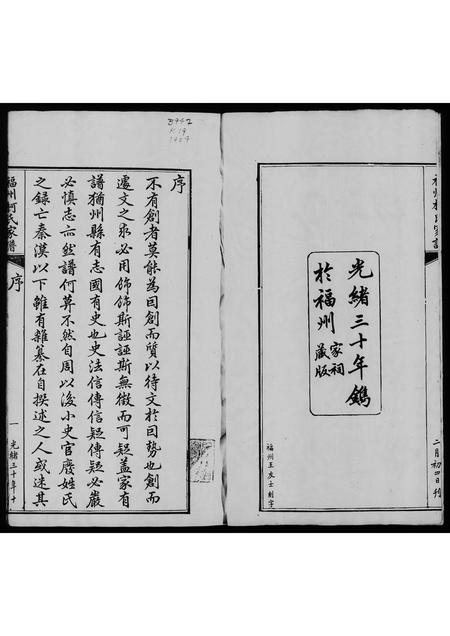 光緒三十年鐫
於福州家祠藏版
二月初四日刊
福州王友士刻字
8942
K19
1404
序
不有創者莫能為因創而質以待文於因勢也創而
遽文之衆必用飾飾斯誣誣斯無徵而可疑蓋家有
譜猶州縣有志國有史也史法信傳信疑傳疑必嚴
必慎志亦然譜何莫不然自周以後小史官廢姓氏
之錄亡秦漢以下雖有雜纂在自撰述之人或述其
福州何氏家譜
序
一
光緒三十年十